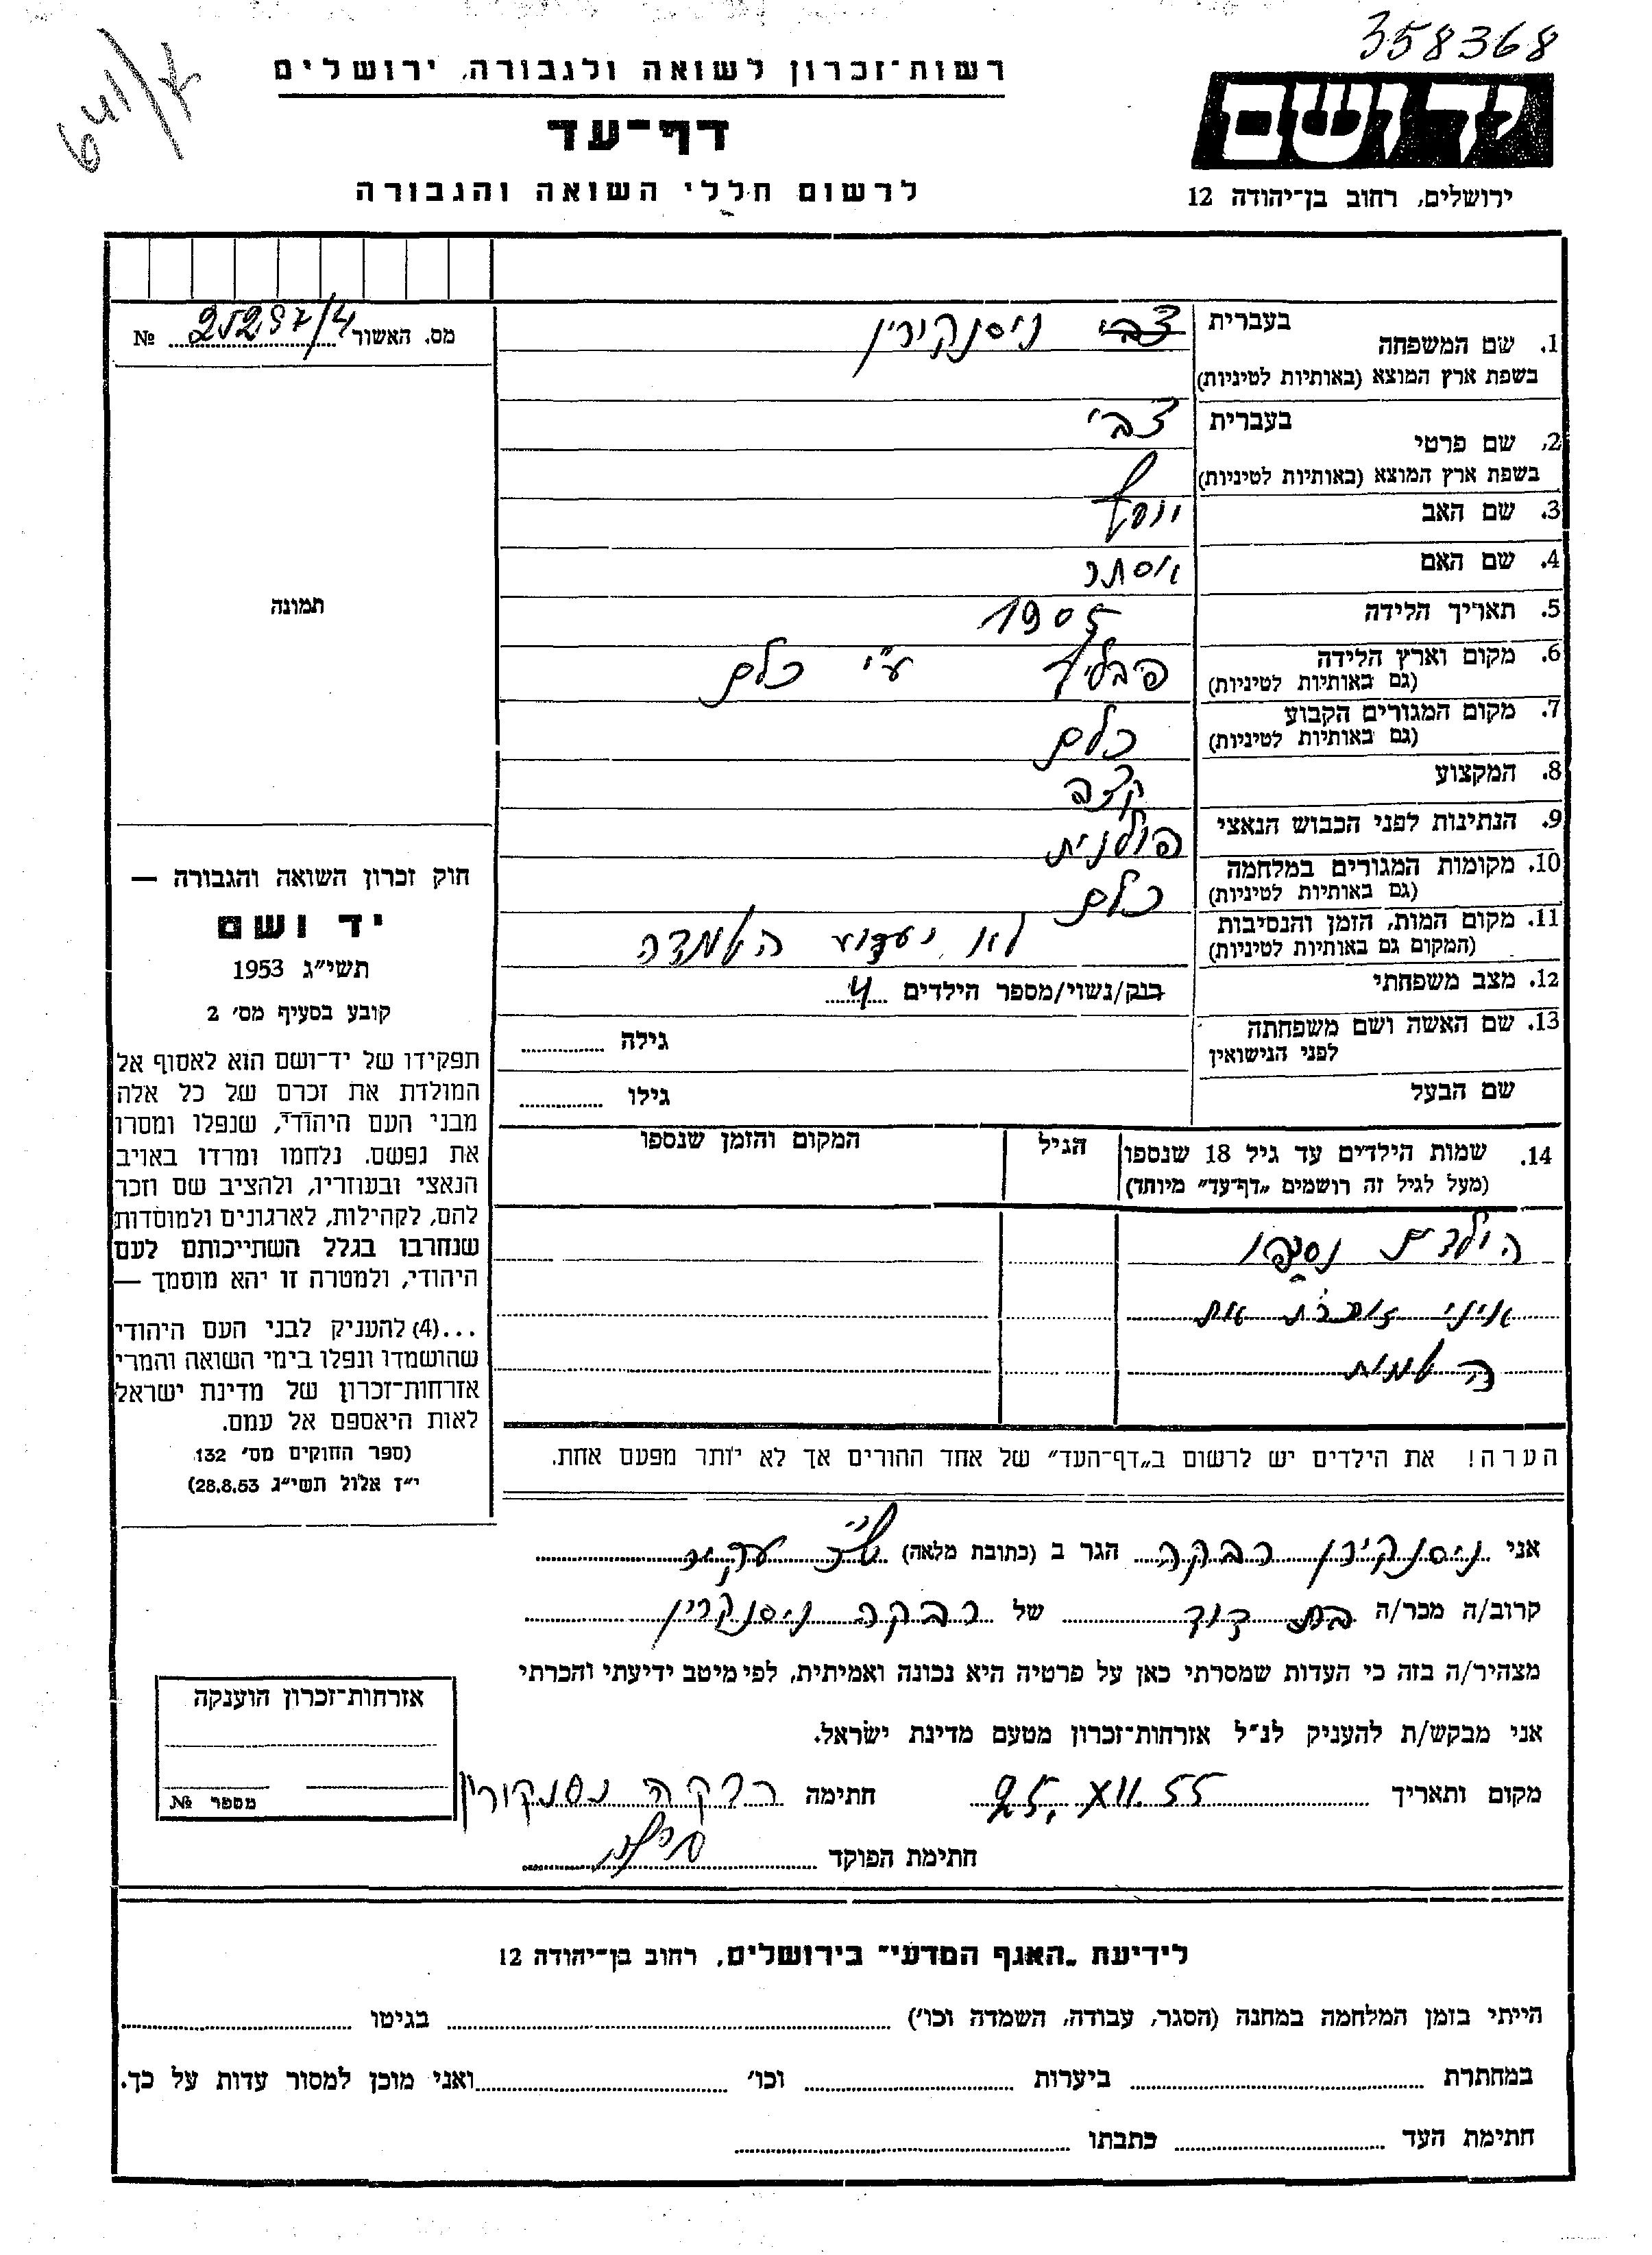 358368
641/א
רשות־זכרון לשואה ולגבורה, ירושלים
דף־עד
לרשום חללי השואה והגבורה
יד ושם
ירושלים, רחוב בן־יהודה 12
מס. האשור 25297/4 №
1. שם המשפחה בעברית צבי ניסנקורין
בשפת ארץ המוצא (באותיות לטיניות)
2. שם פרטי בעברית צבי
בשפת ארץ המוצא (באותיות לטיניות)
3. שם האב יוסף
4. שם האם אסתר
5. תאריך הלידה 1905
6. מקום וארץ הלידה ע"י כלם
(גם באותיות לטיניות)
7. מקום המגורים הקבוע כלם
(גם באותיות לטיניות)
8. המקצוע קצב
9. הנתינות לפני הכבוש הנאצי פולנית
10. מקומות המגורים במלחמה כלם
(גם באותיות לטיניות)
11. מקום המות, הזמן והנסיבות לא ידוע
(המקום גם באותיות לטיניות)
12. מצב משפחתי רווק/נשוי/מספר הילדים 4
13. שם האשה ושם משפחתה גילה
לפני הנישואין
שם הבעל גילו
14. שמות הילדים עד גיל 18 שנספו הגיל המקום והזמן שנספו
(מעל לגיל זה רושמים „דף־עד" מיוחד)
הילדים נספו
אינני זוכרת את
השמות
הערה! את הילדים יש לרשום ב„דף־העד" של אחד ההורים אך לא יותר מפעם אחת.
תמונה
חוק זכרון השואה והגבורה —
יד ושם
תשי"ג 1953
קובע בסעיף מס׳ 2
תפקידו של יד־ושם הוא לאסוף אל
המולדת את זכרם של כל אלה
מבני העם היהודי, שנפלו ומסרו
את נפשם, נלחמו ומרדו באויב
הנאצי ובעוזריו, ולהציב שם וזכר
להם, לקהילות, לארגונים ולמוסדות
שנחרבו בגלל השתייכותם לעם
היהודי, ולמטרה זו יהא מוסמך —
...(4) להעניק לבני העם היהודי
שהושמדו ונפלו בימי השואה והמרי
אזרחות־זכרון של מדינת ישראל
לאות היאספם אל עמם.
(ספר החוקים מס׳ 132
י"ז אלול תשי"ג 28.8.53)
אני ניסנקורין רבקה הגר ב (כתובת מלאה)
קרוב/ה מכר/ה בת דוד של רבקה ניסנקורין
מצהיר/ה בזה כי העדות שמסרתי כאן על פרטיה היא נכונה ואמיתית, לפי מיטב ידיעתי והכרתי
אני מבקש/ת להעניק לנ"ל אזרחות־זכרון מטעם מדינת ישראל.
מקום ותאריך 25.XII.55 חתימה רבקה נסנקורין
חתימת הפוקד
אזרחות־זכרון הוענקה
מספר №
לידיעת „האגף המדעי" בירושלים, רחוב בן־יהודה 12
הייתי בזמן המלחמה במחנה (הסגר, עבודה, השמדה וכו׳) בגיטו
במחתרת ביערות וכו׳ ואני מוכן למסור עדות על כך.
חתימת העד כתבתו